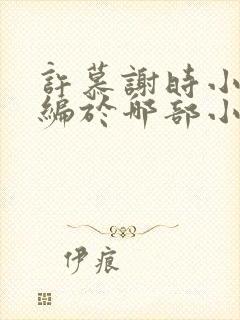 許慕謝時小
編於那部小
伊痕